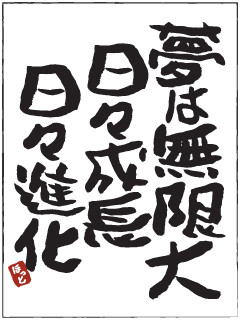 夢は無限大
日々成長
日々進化
ほっと